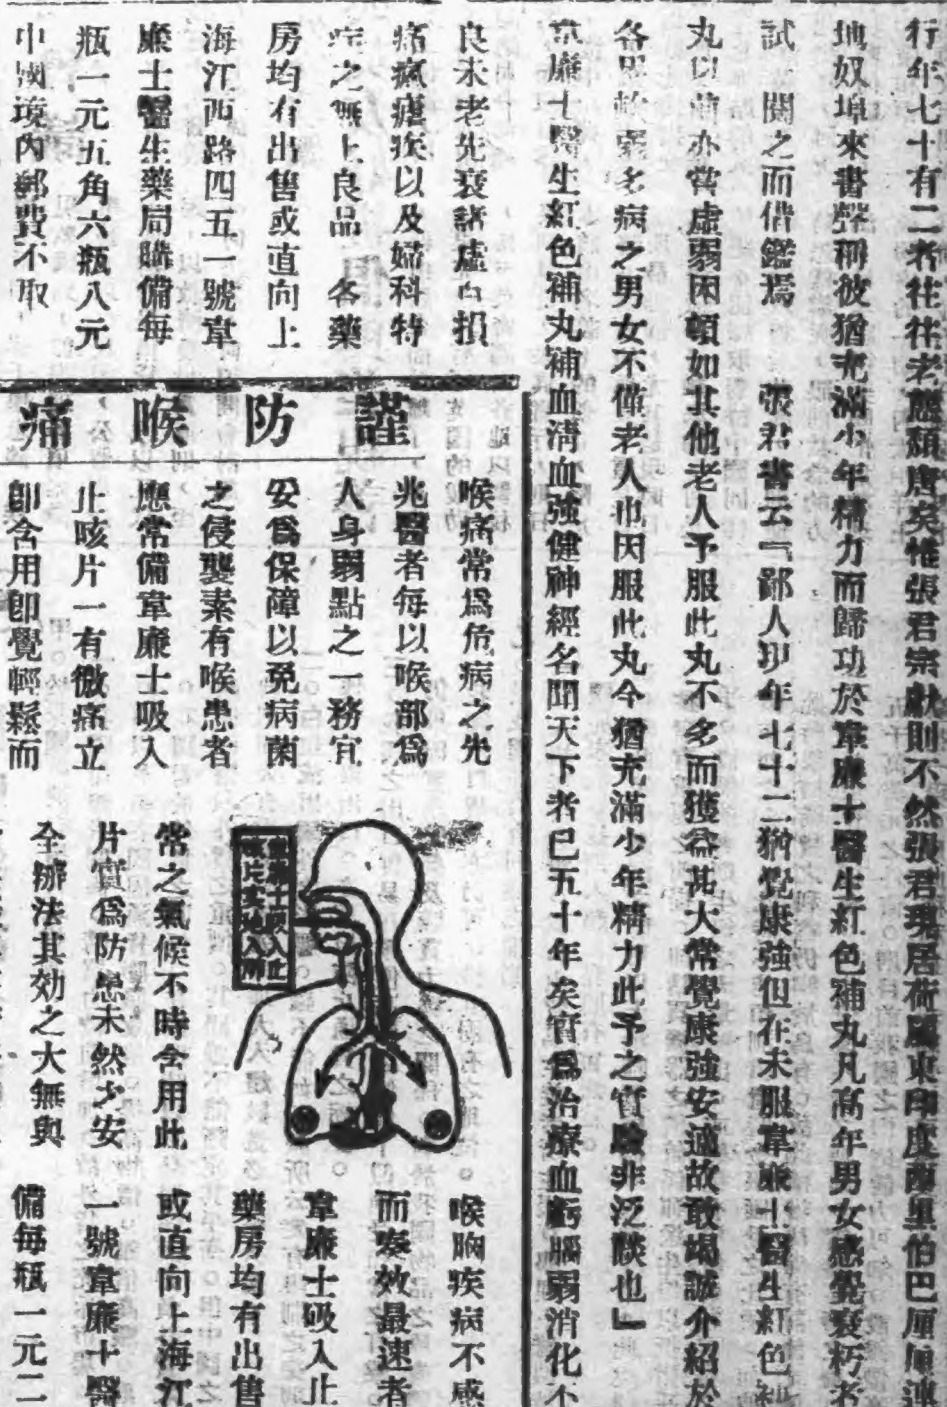 行年七十有二者往往老態頽唐矣惟張君崇猷則不然張君現居荷屬東印度西里伯巴厘厘連
地奴埠來書聲稱彼猶充滿少年精力而歸功於韋廉士醫生紅色補丸凡高年男女感覺衰朽者
試一閱之而借鑑焉　張君書云『鄙人現年七十二猶覺康強但在未服韋廉士醫生紅色補
丸以前亦常虛弱困頓如其他老人予服此丸不多而獲益甚大常覺康強安適故敢竭誠介紹於
各界軟弱多病之男女不僅老人也因服此丸今猶充滿少年精力此予之實驗非泛談也』
韋廉士醫生紅色補丸補血清血強健神經名聞天下者已五十年矣實爲治療血虧腦弱消化不
良未老先衰諸虛百損
痛瘋瘧疾以及婦科特
症之無上良品　各藥
房均有出售或直向上
海江西路四五一號韋
廉士醫生藥局購備每
瓶一元五角六瓶八元
中國境內郵費不取
謹防喉痛
喉痛常爲危病之先
兆醫者每以喉部爲
人身弱點之一務宜
妥爲保障以免病菌
之侵襲素有喉患者
應常備韋廉士吸入
止咳片一有微痛立
卽含用卽覺輕鬆而
常之氣候不時含用此
片實爲防患未然之安
全辦法其効之大無與
喉胸疾病不感
而奏效最速者
韋廉士吸入止
藥房均有出售
或直向上海江
一號韋廉士醫
備每瓶一元二